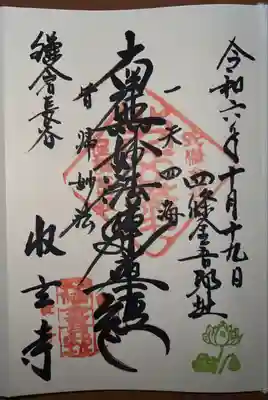 令和六年十月十九日
四條金吾邸趾
一天四海
南無妙法蓮華経
皆帰妙法
鎌倉長谷
収玄寺